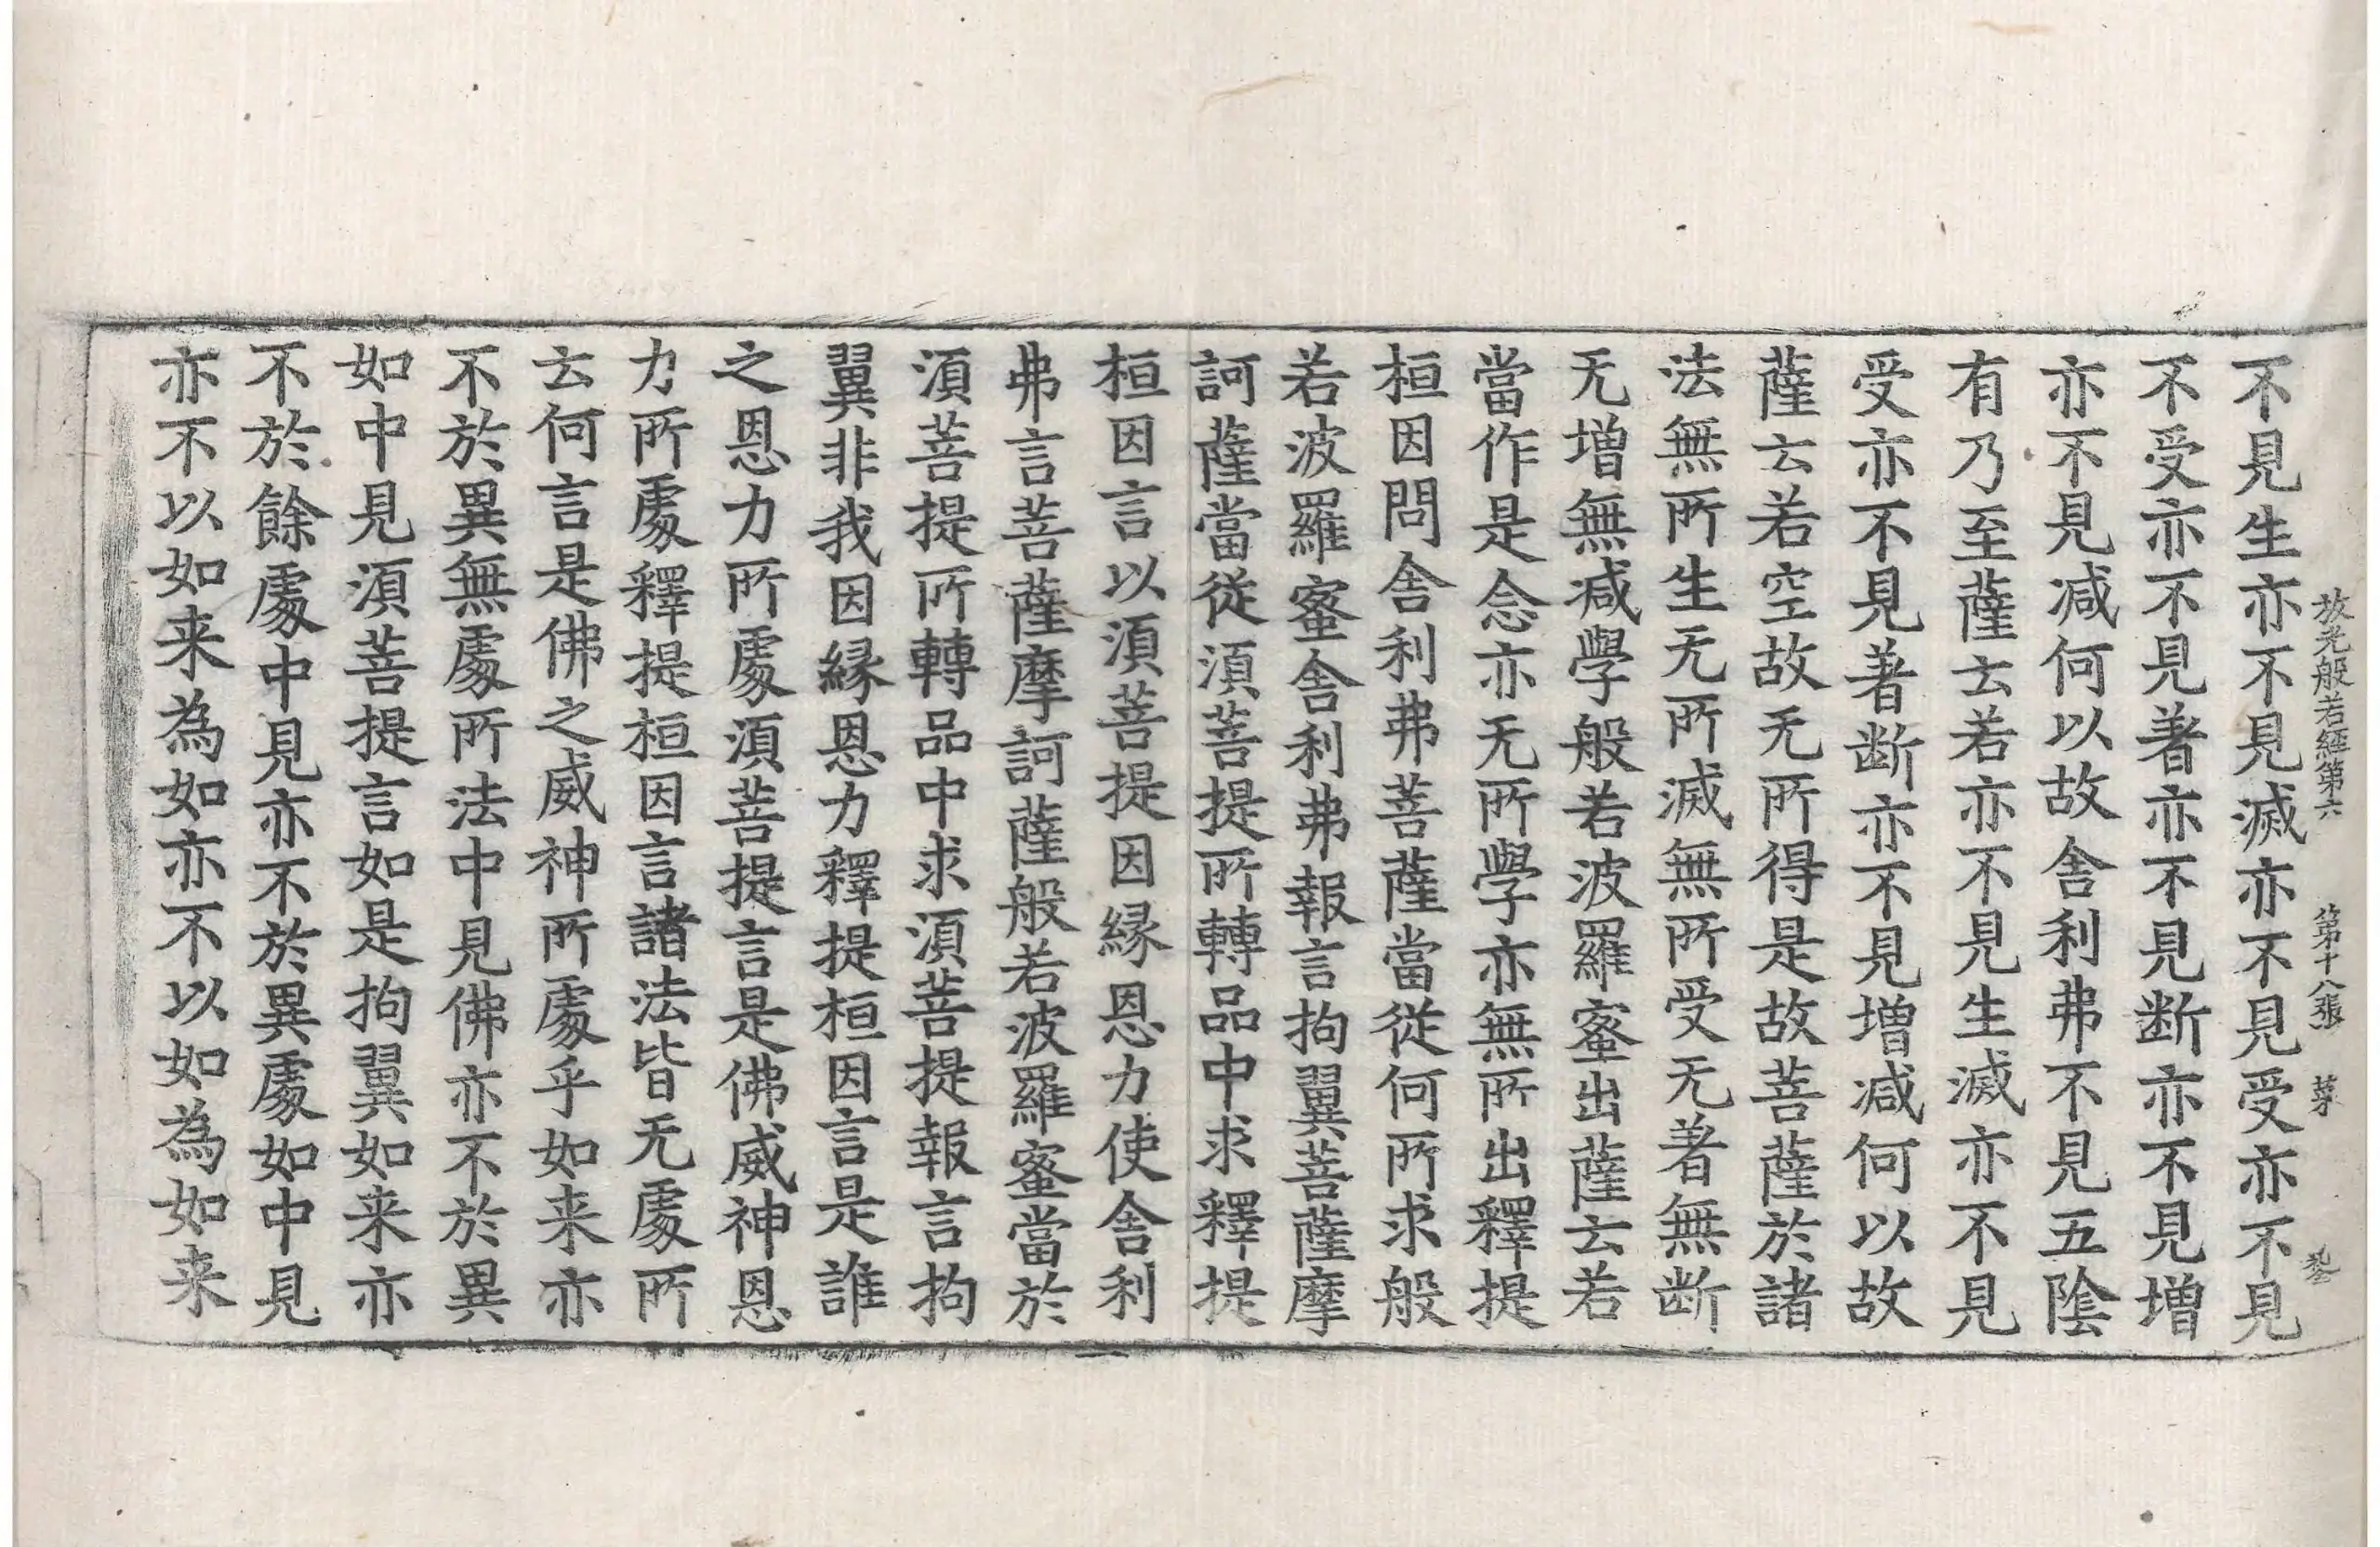 放光般若經第六 第十八張 菜
不見生亦不見滅亦不見受亦不見
不受亦不見著亦不見断亦不見增
亦不見減何以故舎利弗不見五陰
有乃至薩云若亦不見生滅亦不見
受亦不見著断亦不見增减何以故
薩云若空故无所得是故菩薩於諸
法無所生无所滅無所受无著無断
无增無减學般若波羅蜜出薩云若
當作是念亦无所學亦無所出釋提
桓因問舎利弗菩薩當從何所求般
若波羅蜜舎利弗報言拘翼菩薩摩
訶薩當從湏菩提所轉品中求釋提
桓因言以湏菩提因縁恩力使舎利
弗言菩薩摩訶薩般若波羅蜜當於
湏菩提所轉品中求湏菩提報言拘
翼非我因縁恩力釋提桓因言是誰
之恩力所處湏菩提言是佛威神恩
力所處釋提桓因言諸法皆无處所
云何言是佛之威神所處乎如来亦
不於異無處所法中見佛亦不於異
如中見湏菩提言如是拘翼如来亦
不於餘處中見亦不於異處如中見
亦不以如来為如亦不以如為如来